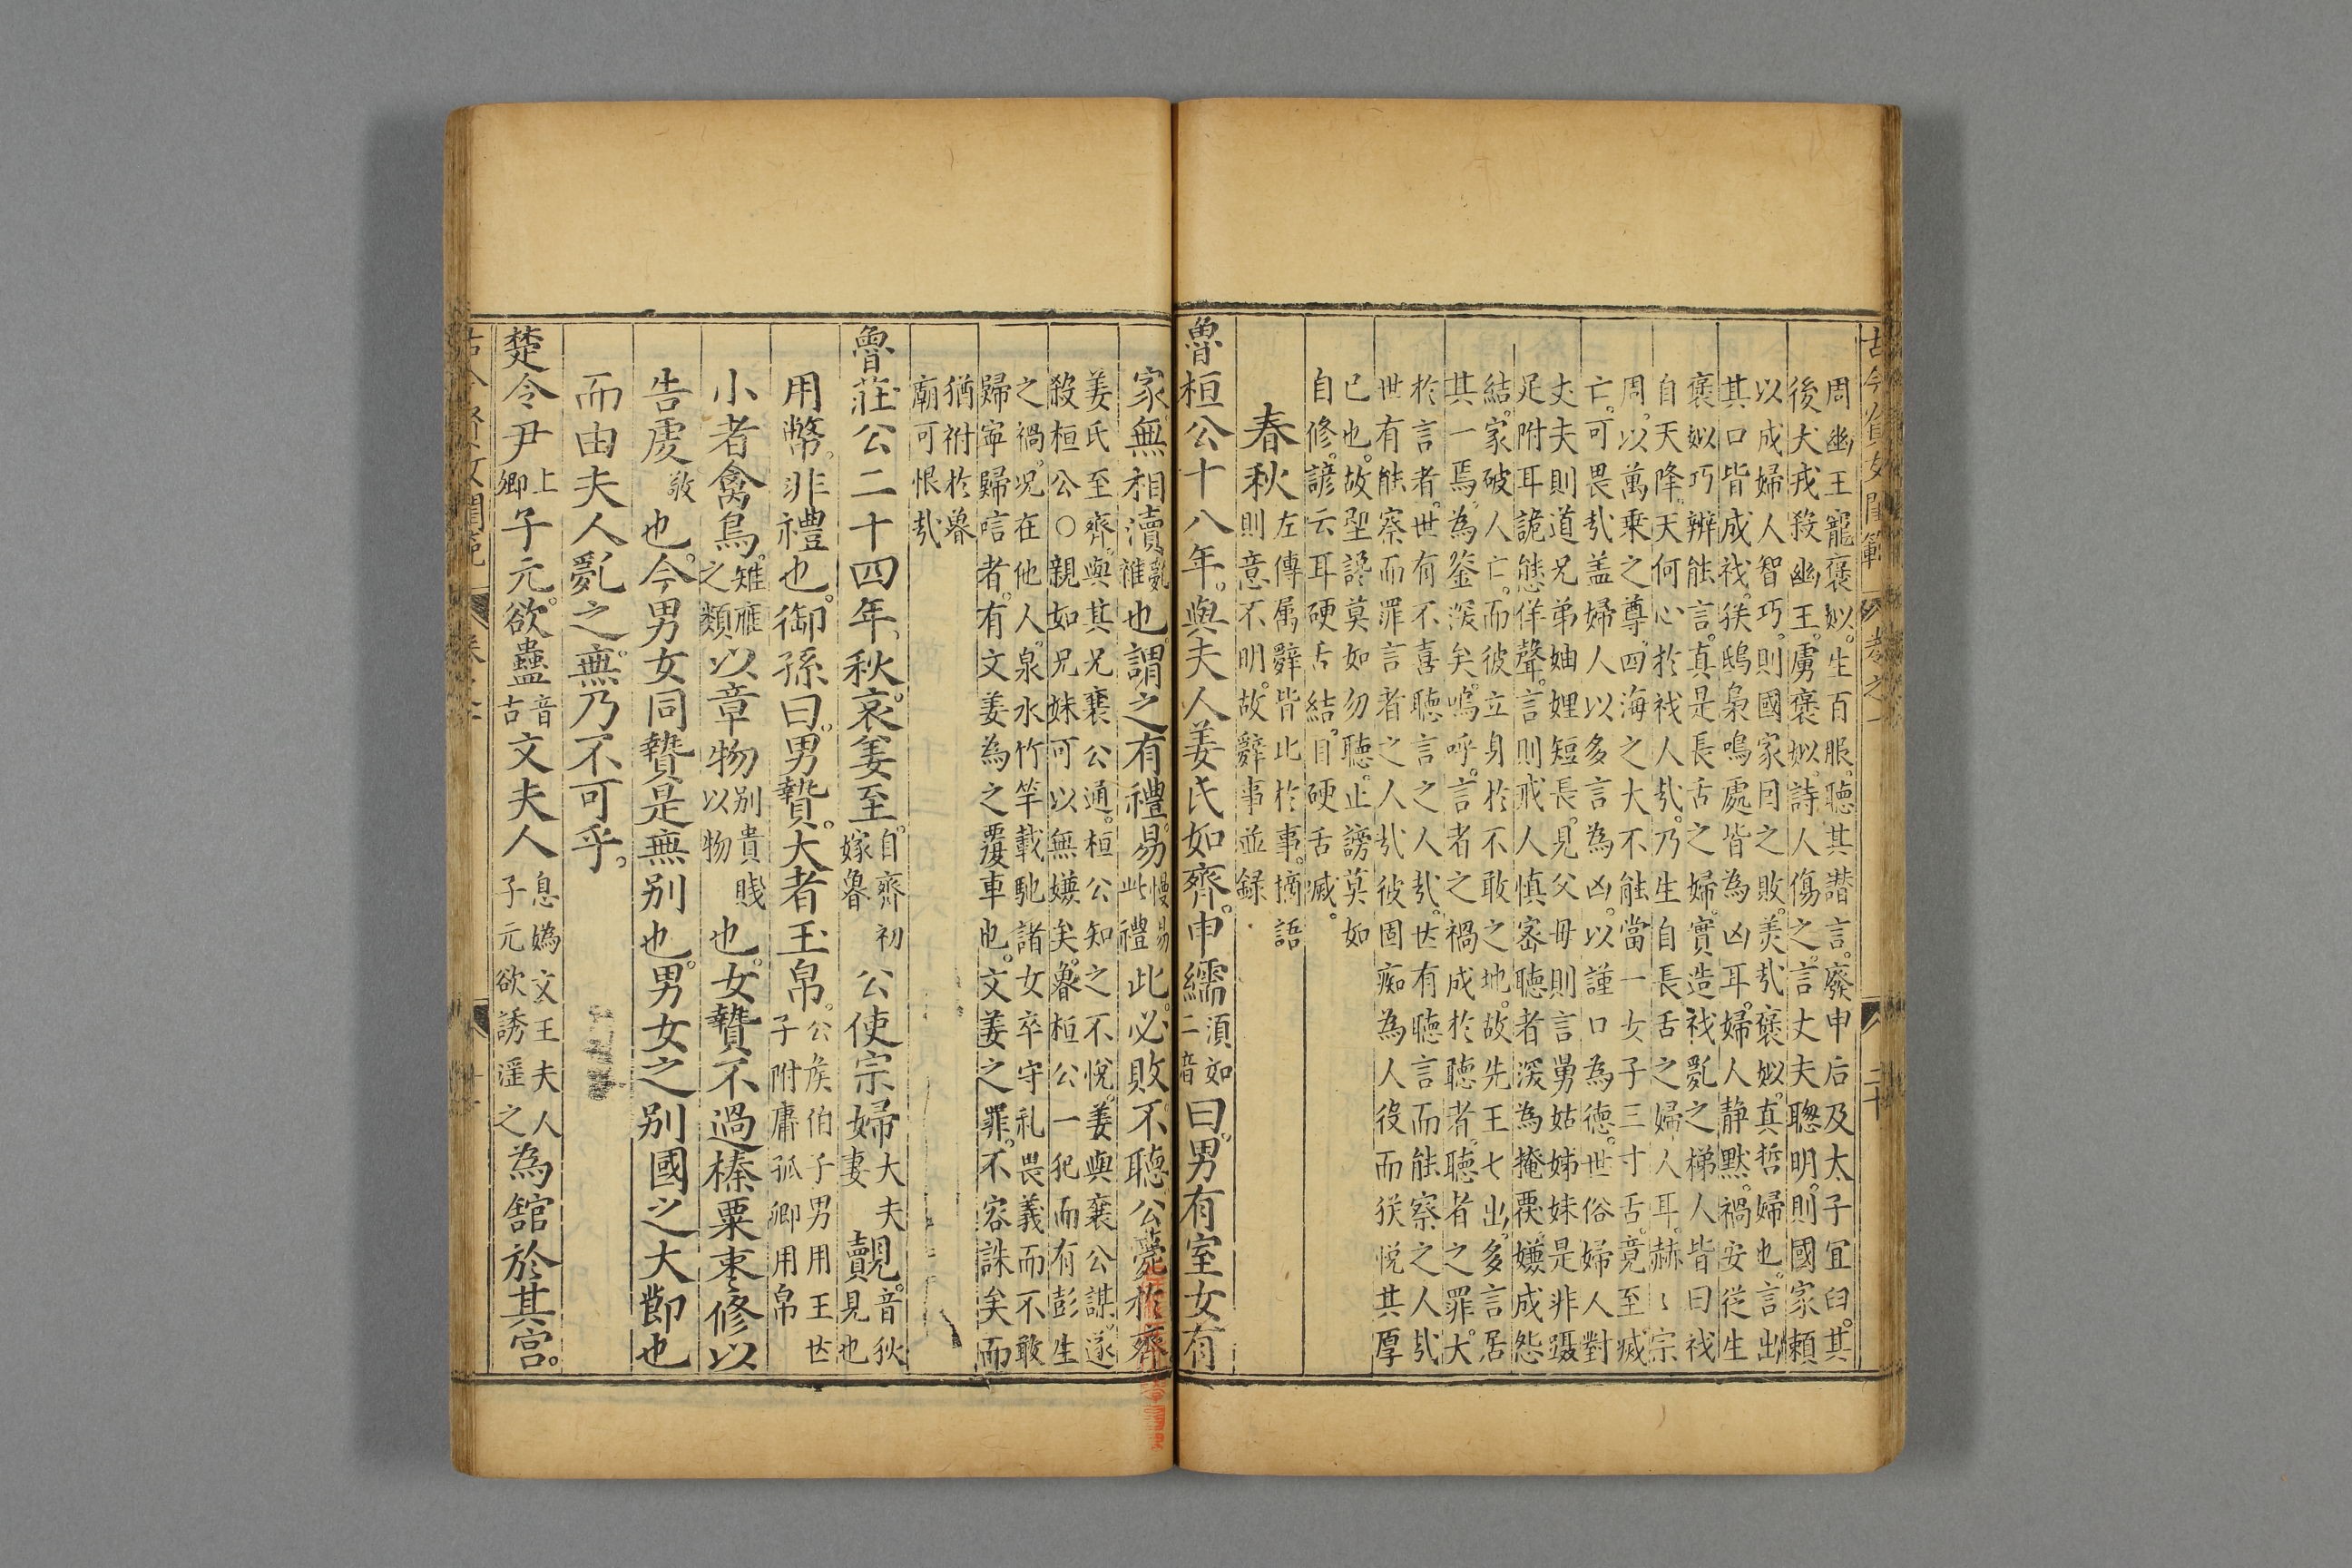 古今賢女閨範 卷之一 二十
周幽王寵褒姒。生百服。聽其譖言。廢申后及太子宜臼。其
後犬戎殺幽王。虜褒姒。詩人傷之。言丈夫聰明。則國家頼
以成婦人智巧。則國家因之敗。美哉褒姒。真哲婦也。言出
其口皆成祅。㺯鴟梟鳴處皆為凶耳。婦人静默。禍安從生
褒姒巧辨能言。真是長舌之婦。實造祅亂之梯人皆曰祅
自天降。天何心於祅人哉。乃生自長舌之婦人耳。赫〻宗
周。以萬乗之尊。四海之大不能當一女子三寸舌。竟至㓕
亡。可畏哉盖婦人以多言為凶。以謹口為德。世俗婦人對
丈夫則道兄弟妯娌短長。見父母則言舅姑姊妹是非躡
足附耳詭態佯聲。言則戒人慎密聽者深為掩覆。嫌成怨
結。家破人亡。而彼立身於不敢之地。故先王七出。多言居
其一焉。為鉴深矣。嗚呼。言者之禍成於聽者。聽者之罪大。
於言者。世有不喜聽言之人哉。世有聽言而能察之人哉
世有能察而罪言者之人哉彼固痴為人役而悦其厚
已也。故聖讒莫如勿聽。止謗莫如
自修。諺云耳硬舌結。目硬舌㓕。
春秋左傳属辭皆此於事。摘語
則意不明。故辭事並録
魯桓公十八年。與夫人姜氏如齊。申繻須如二音曰。男有室女有
家。無相瀆褻亂也。謂之有禮。易慢易此禮此。必敗。不聽。公薨於齊
姜氏至齊。與其兄襄公通。桓公知之不悅。姜與襄公謀。遂
殺桓公〇親如兄妹可以無嫌矣。魯桓公一犯而有彭生
之禍。况在他人。泉水竹竿載馳諸女卒守礼畏義而不敢
歸寧歸唁者。有文姜為之覆車也。文姜之罪。不容誅矣而
猶祔於魯
廟可恨哉
魯莊公二十四年。秋。哀姜至。自齊初嫁魯公使宗婦大夫妻覿。音狄見也
用幣。非禮也。御孫曰。男贄。大者玉帛。公侯伯子男用玉世子附庸孤卿用帛
小者禽鳥。雉雁之類以章物别貴賤以物也。女贄不過榛栗棗修以
告虔敬也。今男女同贄是無别也。男女之别國之大節也
而由夫人亂之。無乃不可乎。
楚令尹上卿子元。欲蠱音古文夫人息媯文王夫人子元欲誘淫之為舘於其宮。